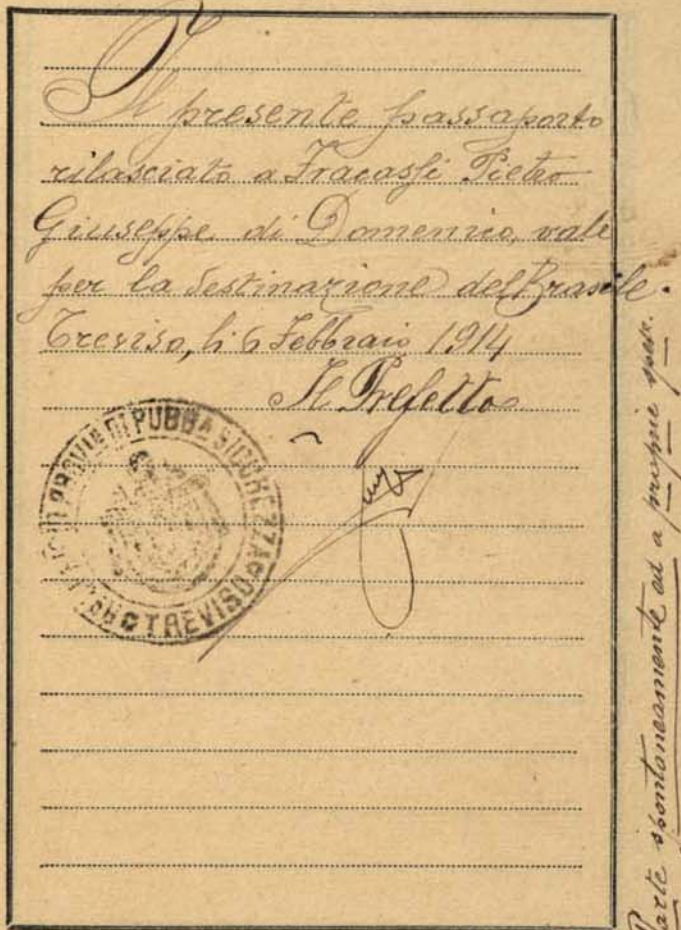 Il presente passaporto
rilasciato a Fracassi Pietro
Giuseppe di Domenico, vale
per la destinazione del Brasile.
Treviso, li 6 Febbraio 1914
Il Prefetto
DI PUBBA SICUREZZA
TREVISO
Parte spontaneamente ed a proprie spese.